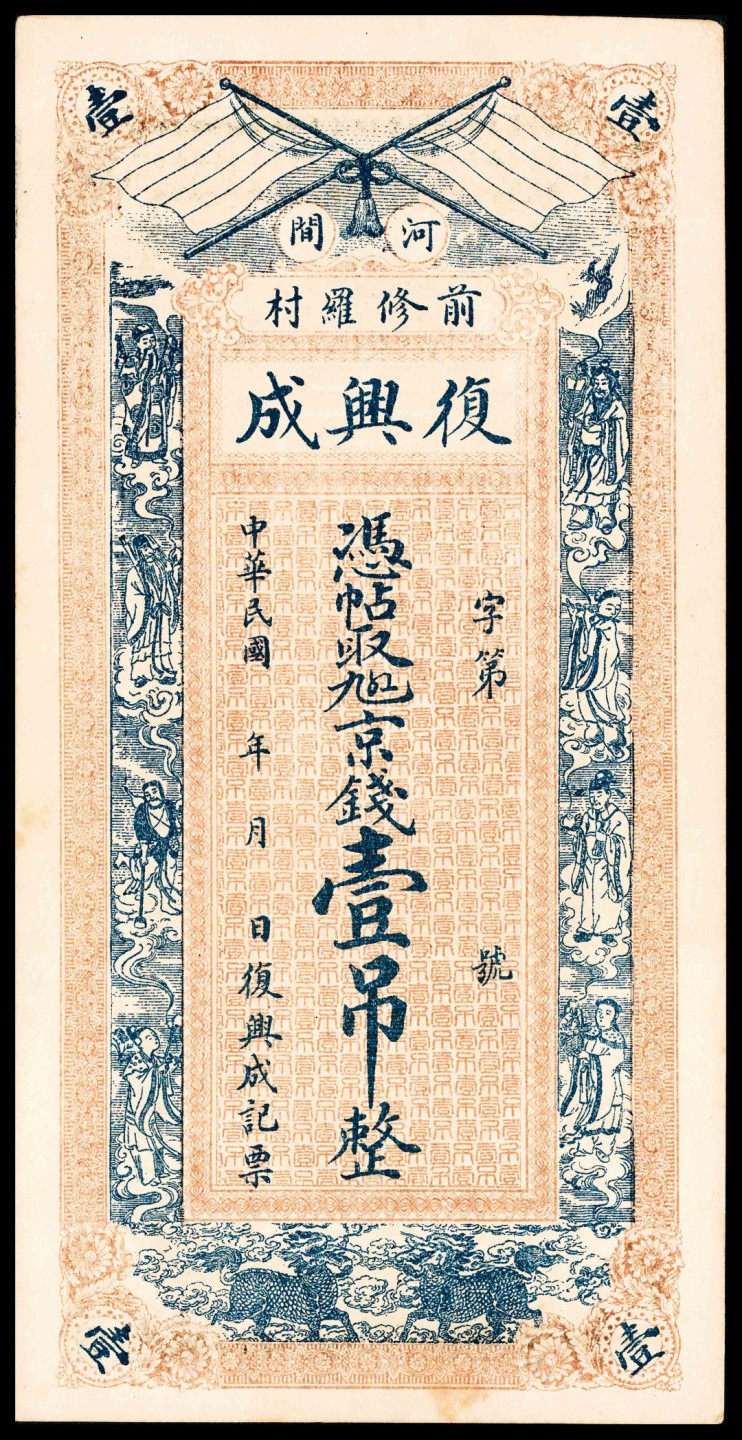 壹 壹
河間
前修羅村
復興成
字第 號
憑帖取 京錢壹吊整
中華民國 年 月 日復興成記票
壹 壹